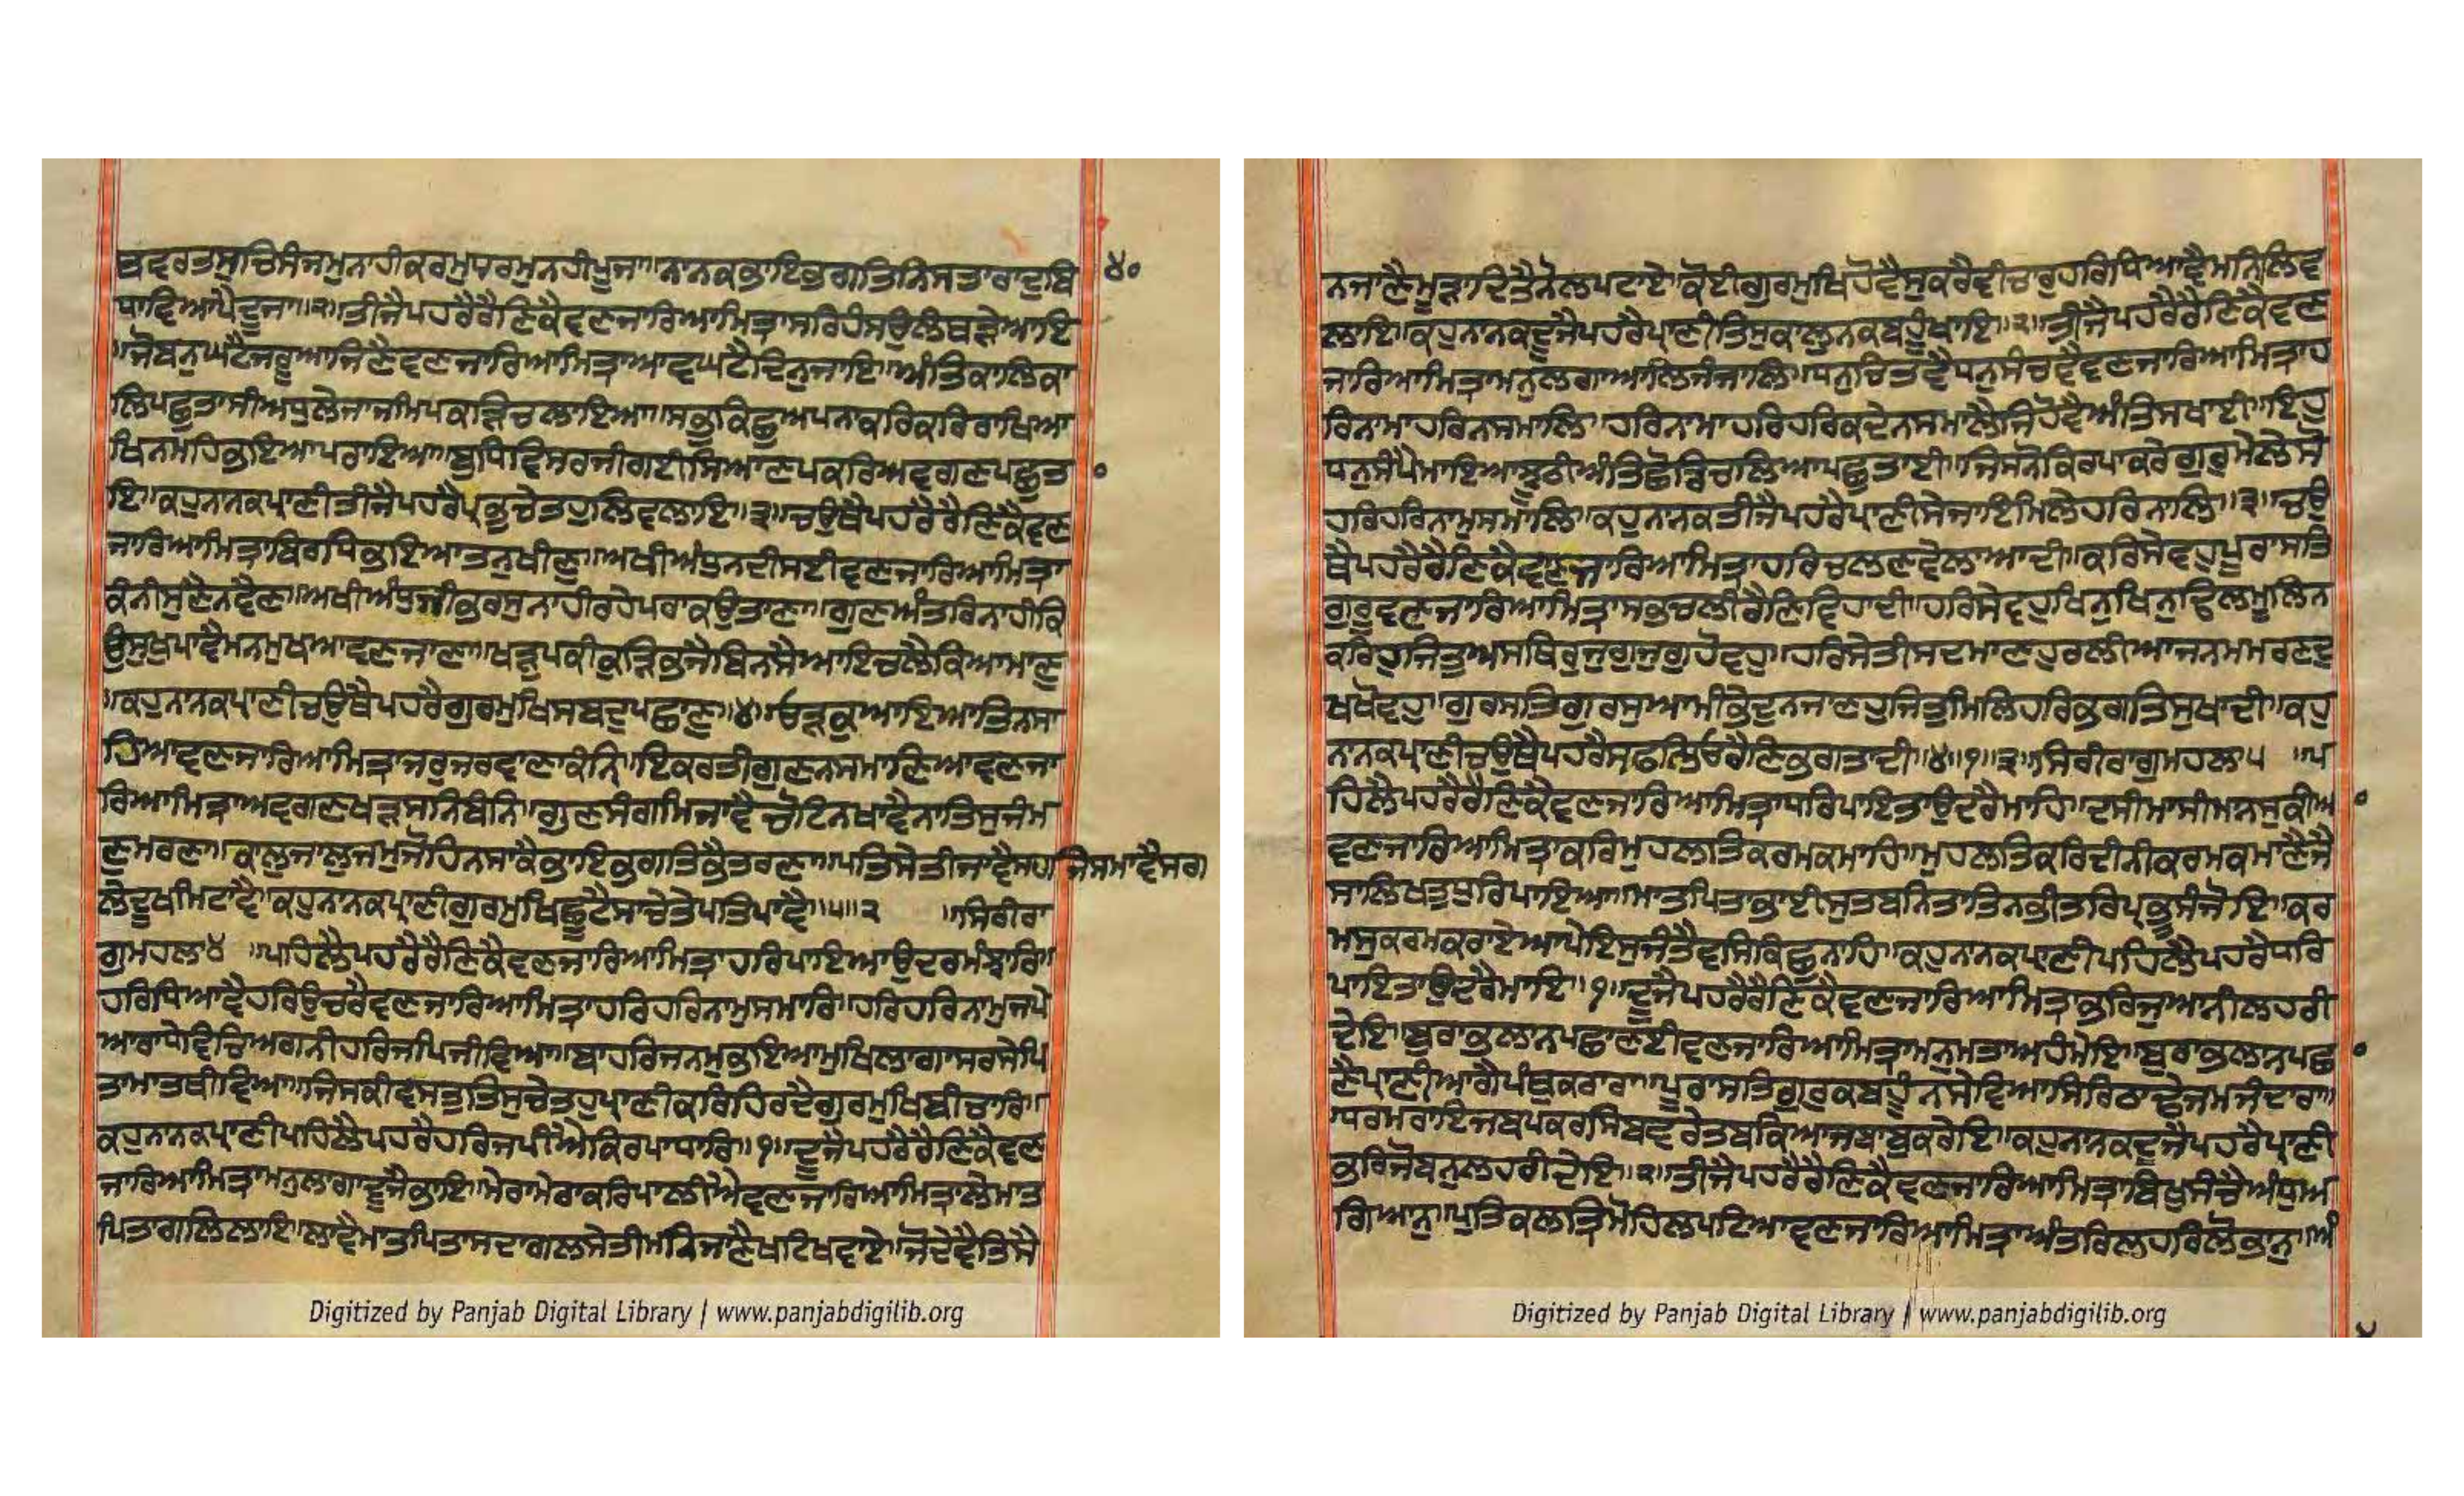 ਬਵਰਤਸੁਚਿਸੰਜਮੁਨਾਹੀਕਰਮੁਧਰਮੁਨਹੀਪੂਜਾ॥ਨਾਨਕਭਾਇਭਗਤਿਨਿਸਤਾਰਾਦੁਬਿ ੪੦
ਧਾਵਿਆਪੈਦੂਜਾ॥੨॥ਤੀਜੈਪਹਰੈਰੈਣਿਕੈਵਣਜਾਰਿਆਮਿਤ੍ਰਾਸਰਿਹੰਸਉਲਥੜੇਆਇ
॥ਜੋਬਨੁਘਟੈਜਰੂਆਜਿਣੈਵਣਜਾਰਿਆਮਿਤ੍ਰਾਆਵਘਟੈਦਿਨੁਜਾਇ॥ਅੰਤਿਕਾਲਿਕਾ
ਲਿਪਛੁਤਾਸੀਅਧੁਲੇਜਾਜਮਿਪਕੜਿਚਲਾਇਆ॥ਸਭੁਕਿਛੁਅਪਨਾਕਰਿਕਰਿਰਾਖਿਆ
ਖਿਨਮਹਿਭਇਆਪਰਾਇਆ॥ਬੁਧਿਵਿਸਰਜੀਗਈਸਿਆਣਪਕਰਿਅਵਗਣਪਛੁਤ
ਇ॥ਕਹੁਨਾਨਕਪ੍ਰਾਣੀਤੀਜੈਪਹਰੈਪ੍ਰਭੁਚੇਤਹੁਲਿਵਲਾਇ॥੩॥ਚਉਥੈਪਹਰੈਰੈਣਿਕੈਵਣ
ਜਾਰਿਆਮਿਤ੍ਰਾਬਿਰਧਿਭਇਆਤਨੁਖੀਣੁ॥ਅਖੀਅੰਧੁਨਦੀਸਈਵਣਜਾਰਿਆਮਿਤ੍ਰਾ
ਕੰਨੀਸੁਣੈਨਵੈਣ॥ਅਖੀਅੰਧੁਜੀਭਰਸੁਨਾਹੀਰਹੇਪਰਾਕਉਤਾਣਾ॥ਗੁਣਅੰਤਰਿਨਾਹੀਕਿ
ਉਸੁਖੁਪਾਵੈਮਨਮੁਖਆਵਣਜਾਣਾ॥ਖੜੁਪਕੀਕੁੜਿਭਜੈਬਿਨਸੈਆਇਚਲੈਕਿਆਮਾਣੁ
॥ਕਹੁਨਾਨਕਪ੍ਰਾਣੀਚਉਥੈਪਹਰੈਗੁਰਮੁਖਿਸਬਦੁਪਛਾਣੁ॥੪॥ਓੜਕੁਆਇਆਤਿਨਸਾ
ਹਿਆਵਣਜਾਰਿਆਮਿਤ੍ਰਾਜਰੁਜਰਵਾਣਾਕੰਨਿ॥ਇਕਰਤੀਗੁਣਨਸਮਾਣਿਆਵਣਜਾ
ਰਿਆਮਿਤ੍ਰਾਅਵਗਣਖੜਸਨਿਬੰਨਿ॥ਗੁਣਸੰਗਮਿਜਾਵੈਚੋਟਨਖਾਵੈਨਾਤਿਸੁਜੰਮ
ਣੁਮਰਣਾ॥ਕਾਲੁਜਾਲੁਜਮੁਜੋਹਿਨਸਾਕੈਭਾਇਭਗਤਿਭੈਤਰਣਾ॥ਪਤਿਸੇਤੀਜਾਵੈਸਹਜਿਸਮਾਵੈਸਗ
ਲੇਦੂਖਮਿਟਾਵੈ॥ਕਹੁਨਾਨਕਪ੍ਰਾਣੀਗੁਰਮੁਖਿਛੂਟੈਸਾਚੇਤੇਪਤਿਪਾਵੈ॥੫॥੨ ॥ਸਿਰੀਰਾ
ਗੁਮਹਲਾ੪ ॥ਪਹਿਲੈਪਹਰੈਰੈਣਿਕੈਵਣਜਾਰਿਆਮਿਤ੍ਰਾਹਰਿਪਾਇਆਉਦਰਮੰਝਾਰਿ॥
ਹਰਿਧਿਆਵੈਹਰਿਉਚਰੈਵਣਜਾਰਿਆਮਿਤ੍ਰਾਹਰਿਹਰਿਨਾਮੁਸਮਾਰਿ॥ਹਰਿਹਰਿਨਾਮੁਜਪੇ
ਆਰਾਧੇਵਿਚਿਅਗਨੀਹਰਿਜਪਿਜੀਵਿਆ॥ਬਾਹਰਿਜਨਮੁਭਇਆਮੁਖਿਲਾਗਾਸਰਸੇਪਿ
ਤਾਮਾਤਥੀਵਿਆ॥ਜਿਸਕੀਵਸਤੁਤਿਸੁਚੇਤਹੁਪ੍ਰਾਣੀਕਰਿਹਿਰਦੈਗੁਰਮੁਖਿਬੀਚਾਰਿ॥
ਕਹੁਨਾਨਕਪ੍ਰਾਣੀਪਹਿਲੈਪਹਰੈਹਰਿਜਪੀਐਕਿਰਪਾਧਾਰਿ॥੧॥ਦੂਜੈਪਹਰੈਰੈਣਿਕੈਵਣ
ਜਾਰਿਆਮਿਤ੍ਰਾਮਨੁਲਾਗਾਦੂਜੈਭਾਇ॥ਮੇਰਾਮੇਰਾਕਰਿਪਾਲੀਐਵਣਜਾਰਿਆਮਿਤ੍ਰਾਲੇਮਾਤ
ਪਿਤਾਗਲਿਲਾਇ॥ਲਾਵੈਮਾਤੁਪਿਤਾਸਦਾਗਲਸੇਤੀਮਨਿਜਾਣੈਖਟਿਖਵਾਏ॥ਜੋਦੇਵੈਤਿਸੈ
ਨਜਾਣੈਮੂੜਾਦਿਤੈਨੋਲਪਟਾਏ॥ਕੋਈਗੁਰਮੁਖਿਹੋਵੈਸੁਕਰੈਵੀਚਾਰੁਹਰਿਧਿਆਵੈਮਨਿਲਿਵ
ਲਾਇ॥ਕਹੁਨਾਨਕਦੂਜੈਪਹਰੈਪ੍ਰਾਣੀਤਿਸੁਕਾਲੁਨਕਬਹੂੰਖਾਇ॥੨॥ਤੀਜੈਪਹਰੈਰੈਣਿਕੈਵਣ
ਜਾਰਿਆਮਿਤ੍ਰਾਮਨੁਲਗਾਆਲਿਜੰਜਾਲਿ॥ਧਨੁਚਿਤਵੈਧਨੁਸੰਚਵੈਵਣਜਾਰਿਆਮਿਤ੍ਰਾਹ
ਰਿਨਾਮਾਹਰਿਨਸਮਾਲਿ॥ਹਰਿਨਾਮਾਹਰਿਹਰਿਕਦੇਨਸਮਾਲੈਜਿਹੋਵੈਅੰਤਿਸਖਾਈ॥ਇਹੁ
ਧਨੁਸੰਪੈਮਾਇਆਝੂਠੀਅੰਤਿਛੋੜਿਚਲਿਆਪਛੁਤਾਈ॥ਜਿਸਨੋਕਿਰਪਾਕਰੇਗੁਰੁਮੇਲੇਸੋ
ਹਰਿਹਰਿਨਾਮੁਸਮਾਲਿ॥ਕਹੁਨਾਨਕਤੀਜੈਪਹਰੈਪ੍ਰਾਣੀਸੇਜਾਇਮਿਲੇਹਰਿਨਾਲਿ॥੩॥ਚਉ
ਥੈਪਹਰੈਰੈਣਿਕੈਵਣਜਾਰਿਆਮਿਤ੍ਰਾਹਰਿਚਲਣਵੇਲਾਆਦੀ॥ਕਰਿਸੇਵਹੁਪੂਰਾਸਤਿ
ਗੁਰੂਵਣਜਾਰਿਆਮਿਤ੍ਰਾਸਭਚਲੀਰੈਣਿਵਿਹਾਦੀ॥ਹਰਿਸੇਵਹੁਖਿਨੁਖਿਨੁਢਿਲਮੂਲਿਨ
ਕਰਿਹੁਜਿਤੁਅਸਥਿਰੁਜੁਗੁਜੁਗੁਹੋਵਹੁ॥ਹਰਿਸੇਤੀਸਦਮਾਣਹੁਰਲੀਆਜਨਮਮਰਣਦੁ
ਖਖੋਵਹੁ॥ਗੁਰਸਤਿਗੁਰਸੁਆਮੀਭੇਦੁਨਜਾਣਹੁਜਿਤੁਮਿਲਿਹਰਿਭਗਤਿਸੁਖਾਦੀ॥ਕਹੁ
ਨਾਨਕਪ੍ਰਾਣੀਚਉਥੈਪਹਰੈਸਫਲਿਓਰੈਣਿਭਗਤਾਦੀ॥੪॥੧॥੩॥ਸਿਰੀਰਾਗੁਮਹਲਾ੫ ॥ਪ
ਹਿਲੈਪਹਰੈਰੈਣਿਕੈਵਣਜਾਰਿਆਮਿਤ੍ਰਾਧਰਿਪਾਇਤਾਉਦਰੈਮਾਹਿ॥ਦਸੀਮਾਸੀਮਾਨਸੁਕੀਆ
ਵਣਜਾਰਿਆਮਿਤ੍ਰਾਕਰਿਮੁਹਲਤਿਕਰਮਕਮਾਹਿ॥ਮੁਹਲਤਿਕਰਿਦੀਨੀਕਰਮਕਮਾਣੈਜੈ
ਸਾਲਿਖਤੁਧੁਰਿਪਾਇਆ॥ਮਾਤਪਿਤਾਭਾਈਸੁਤਬਨਿਤਾਤਿਨਭੀਤਰਿਪ੍ਰਭੂਸੰਜੋਇ॥ਕਰ
ਮਸੁਕਰਮਕਰਾਏਆਪੇਇਸੁਜੰਤੈਵਸਿਕਿਛੁਨਾਹਿ॥ਕਹੁਨਾਨਕਪ੍ਰਾਣੀਪਹਿਲੈਪਹਰੈਧਰਿ
ਪਾਇਤਾਉਦਰੈਮਾਇ॥੧॥ਦੂਜੈਪਹਰੈਰੈਣਿਕੈਵਣਜਾਰਿਆਮਿਤ੍ਰਾਭਰਿਜੁਆਨੀਲਹਰੀ
ਦੇਇ॥ਬੁਰਾਭਲਾਨਪਛਾਣਈਵਣਜਾਰਿਆਮਿਤ੍ਰਾਮਨੁਮਤਾਅਹੰਮੇਇ॥ਬੁਰਾਭਲਾਨਪਛਾ
ਣੈਪ੍ਰਾਣੀਆਗੈਪੰਥੁਕਰਾਰਾ॥ਪੂਰਾਸਤਿਗੁਰੁਕਬਹੂੰਨਸੇਵਿਆਸਿਰਿਠਾਢੇਜਮਜੰਦਾਰਾ॥
॥ਧਰਮਰਾਇਜਬਪਕਰਸਿਬਵਰੇਤਬਕਿਆਜਬਾਬੁਕਰੇਇ॥ਕਹੁਨਾਨਕਦੂਜੈਪਹਰੈਪ੍ਰਾਣੀ
ਭਰਿਜੋਬਨੁਲਹਰੀਦੇਇ॥੨॥ਤੀਜੈਪਹਰੈਰੈਣਿਕੈਵਣਜਾਰਿਆਮਿਤ੍ਰਾਬਿਖੁਸੰਚੈਅੰਧੁਅ
ਗਿਆਨੁ॥ਪੁਤ੍ਰਿਕਲਤ੍ਰਿਮੋਹਿਲਪਟਿਆਵਣਜਾਰਿਆਮਿਤ੍ਰਾਅੰਤਰਿਲਹਰਿਲੋਭਾਨੁ॥ਅੰ
Digitized by Panjab Digital Library | www.panjabdigilib.org
Digitized by Panjab Digital Library | www.panjabdigilib.org